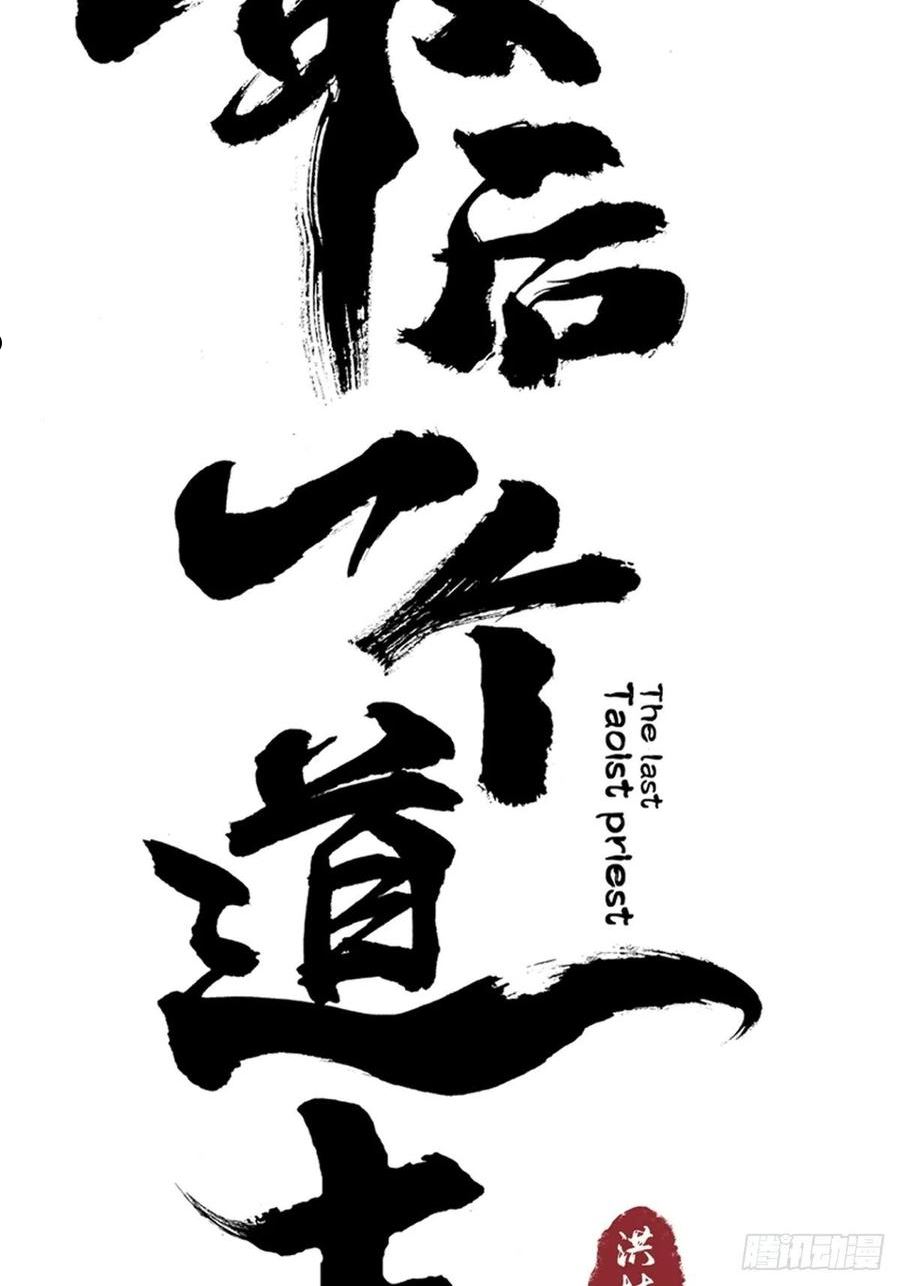 最后一个道士
The last
Taoist priest
洪
腾讯动漫